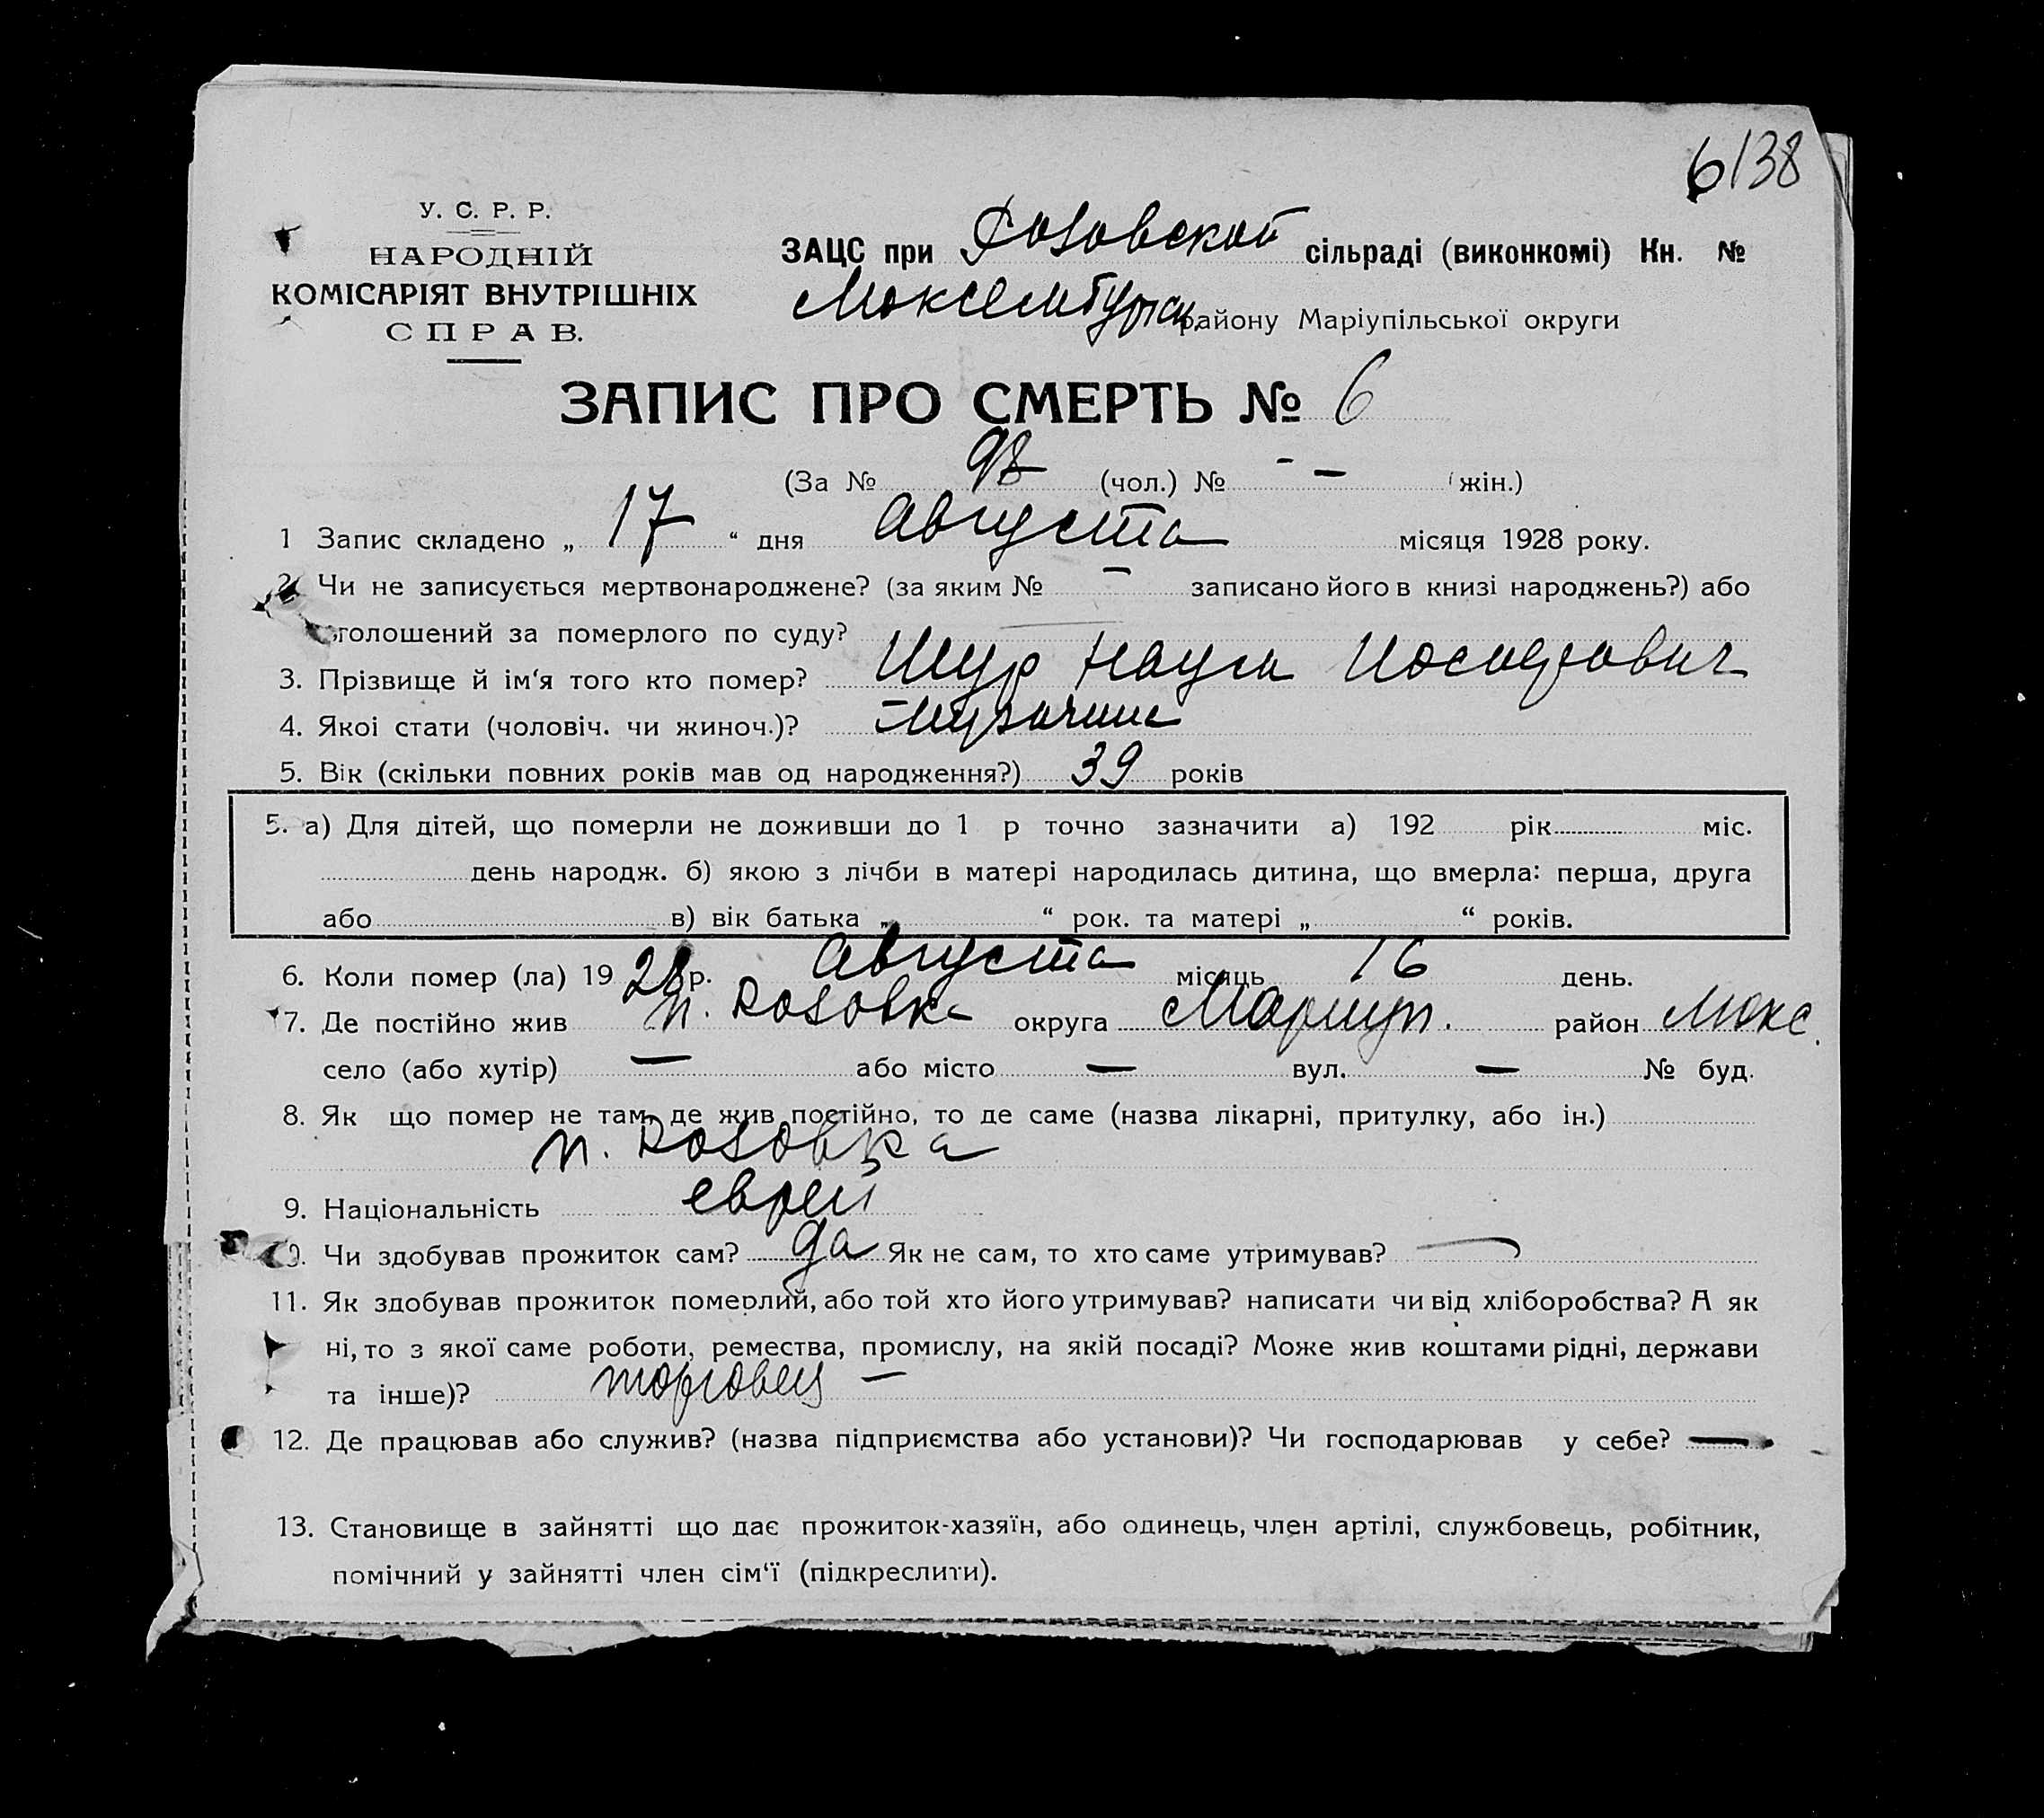 6/38
У. С. Р. Р.
НАРОДНІЙ
КОМІСАРІЯТ ВНУТРІШНІХ
СПРАВ.
ЗАЦС при Розовской сільраді (виконкомі) Кн. №
районy Маріупільської округи
ЗАПИС ПРО СМЕРТЬ № 6
(За № (чол.) № - — жін.)
1 Запис складено „ 17 “ дня августа місяця 1928 року.
2. Чи не записується мертвонароджене? (за яким № — записано його в книзі народжень?) або
оголошений за померлого по суду?
3. Прізвище й ім‘я того кто помер? Шур Наум Иосифович
4. Якоі стати (чоловіч. чи жиноч.)? Мужчина
5. Вік (скільки повних років мав од народження?) 39 років
5. а) Для дітей, що померли не доживши до 1 р точно зазначити а) 192 рік міс.
день народж. б) якою з лічби в матері народилась дитина, що вмерла: перша, друга
або в) вік батька „ “ рок. та матері „ “ років.
6. Коли помер (ла) 1928 р. августа місяць 16 день.
7. Де постійно жив п. Розовка округа Мариуп. район Люкс.
село (або хутір) — або місто — вул. — № буд.
8. Як що помер не там, де жив постійно, то де саме (назва лікарні, притулку, або ін.)
п. Розовка
9. Національність еврей
10. Чи здобував прожиток сам? да Як не сам, то хто саме утримував? —
11. Як здобував прожиток померлий, або той хто його утримував? написати чи від хліборобства? А як
ні, то з якої саме роботи, ремества, промислу, на якій посаді? Може жив коштами рідні, держави
та інше)? торговец —
12. Де працював або служив? (назва підприємства або установи)? Чи господарював у себе? —
13. Становище в зайнятті що дає прожиток-хазяїн, або одинець, член артілі, службовець, робітник,
помічний у зайнятті член сім‘ї (підкреслити).